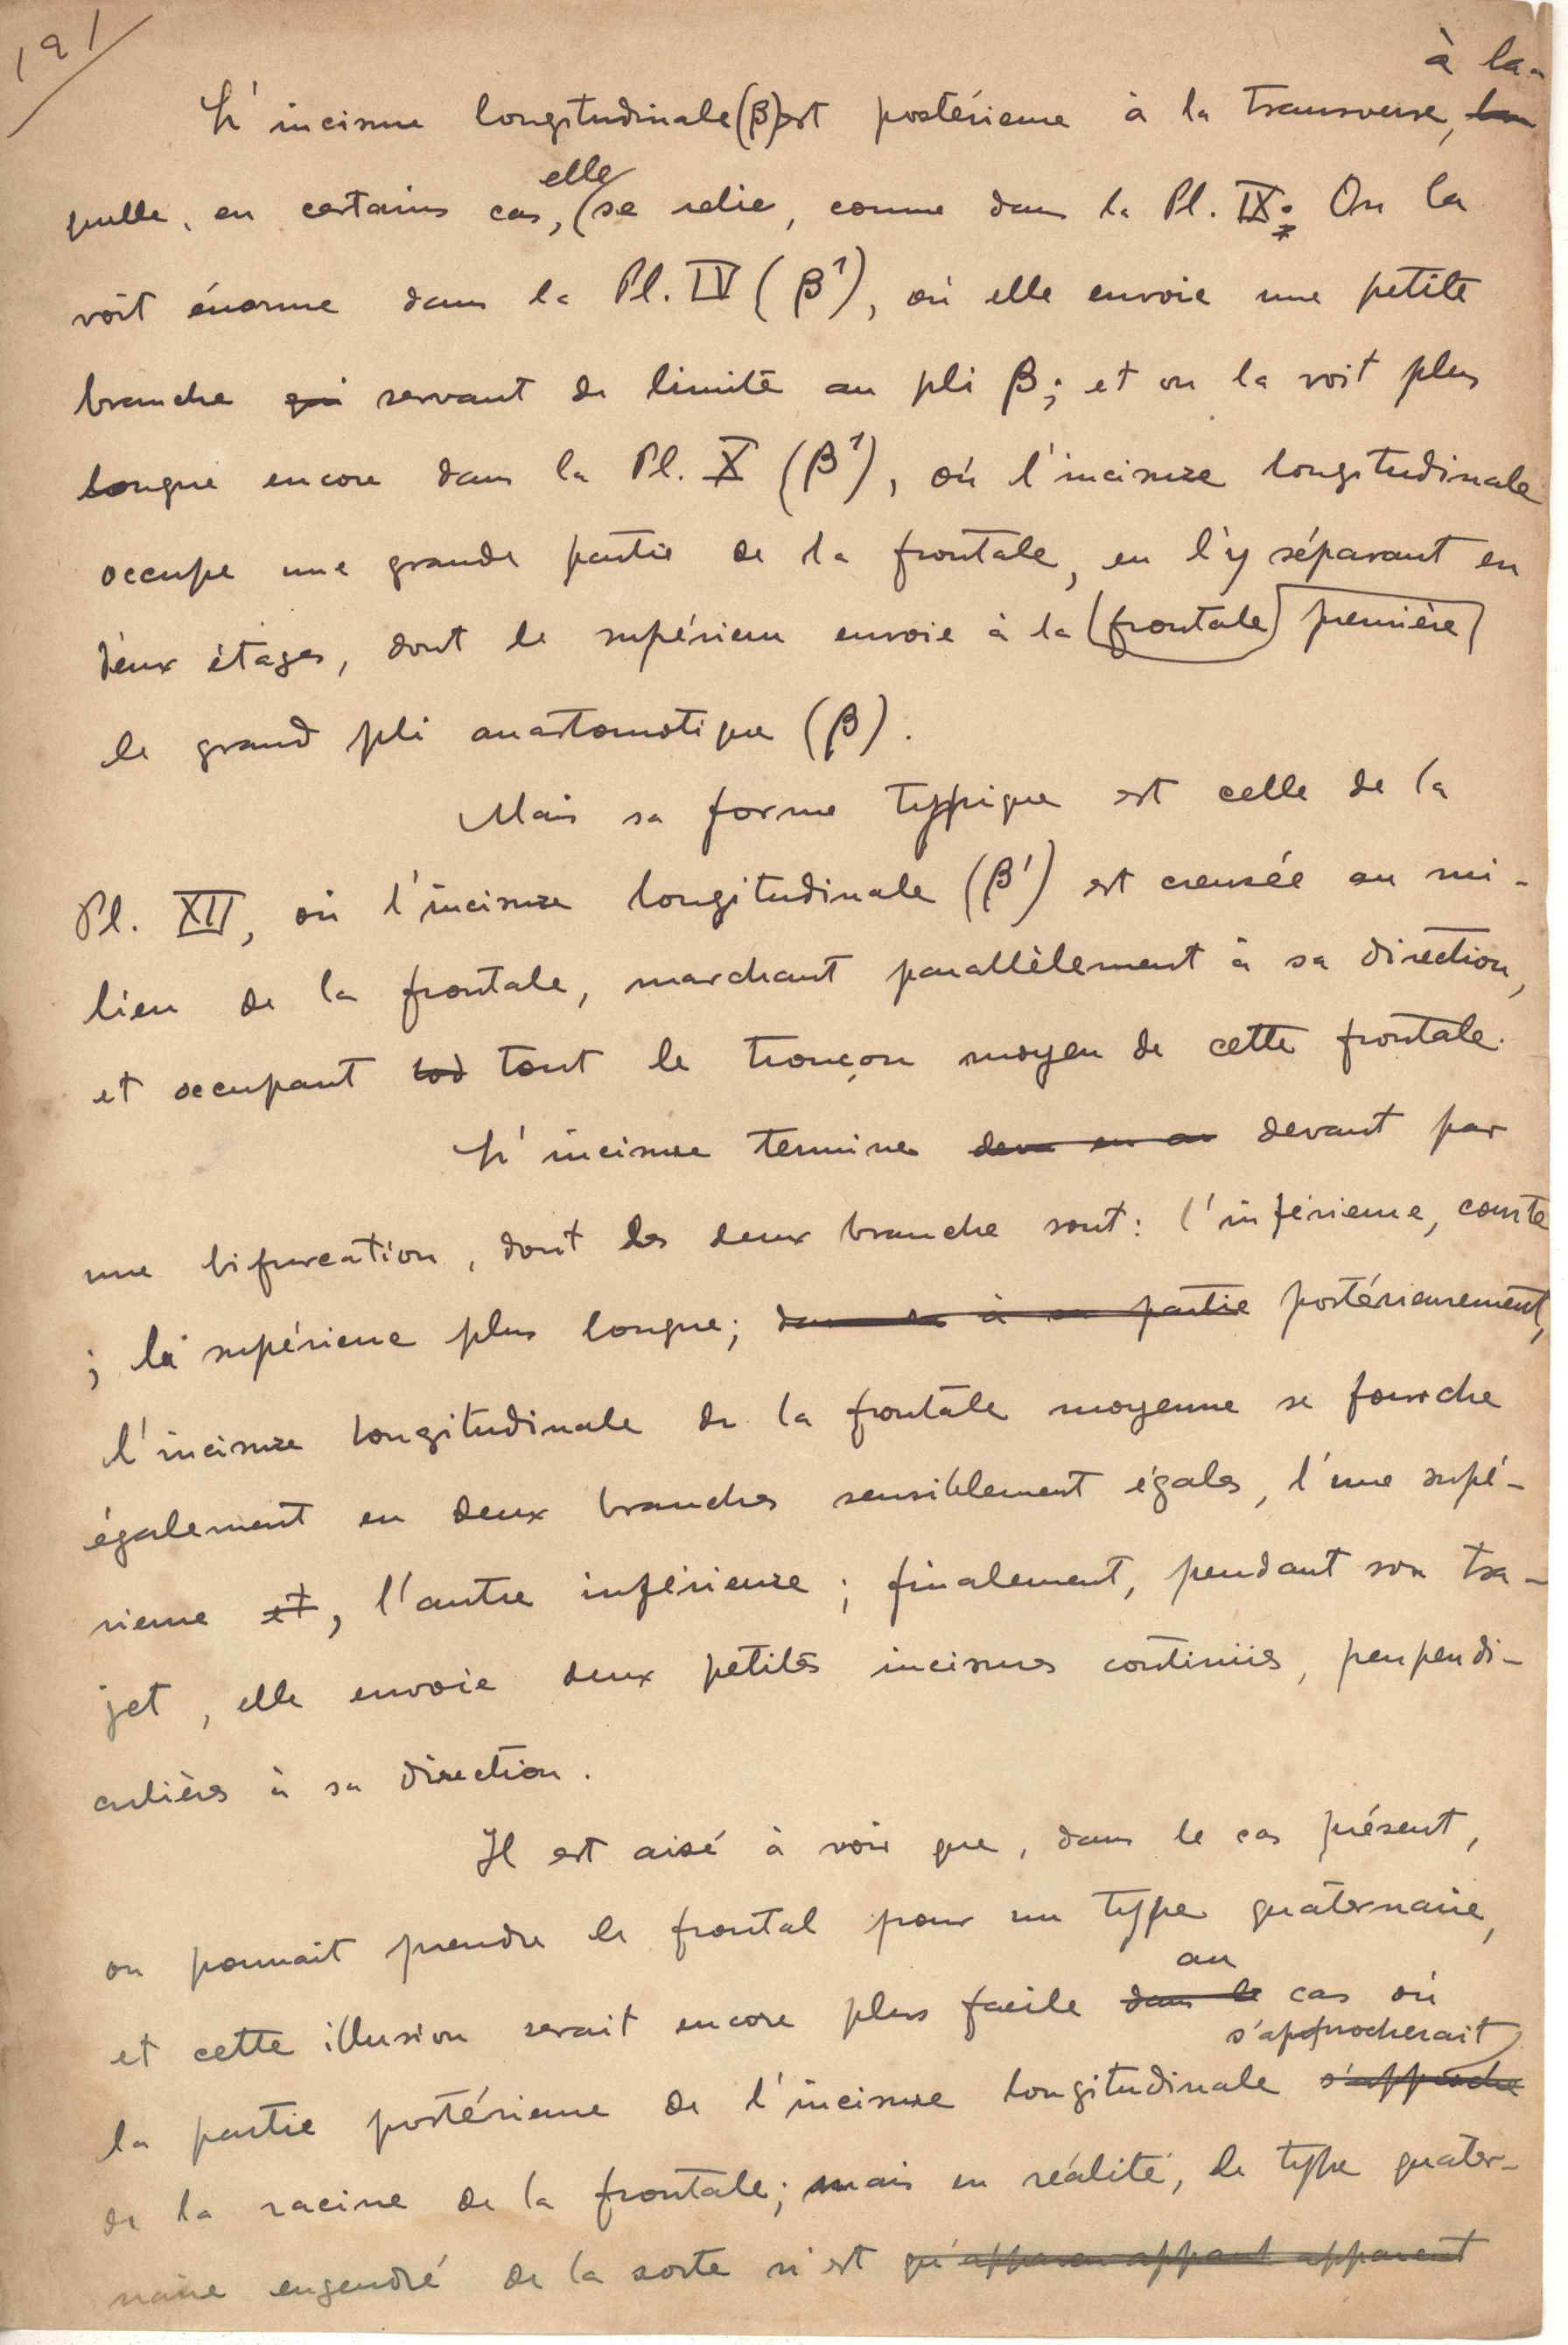 191
à la-
L'incisure longitudinale (β) est postérieure à la transverse, la
quelle, en certains cas, elle se relie, comme dans la Pl. IX. On la
voit énorme dans la Pl. IV (β¹), où elle envoie une petite
branche qui servant de limite au pli β; et on la voit plus
longue encore dans la Pl. X (β¹), où l'incisure longitudinale
occupe une grande partie de la frontale, en l'y séparant en
deux étages, dont le supérieur envoie à la (frontale) première
le grand pli anastomotique (β).
Mais sa forme typique est celle de la
Pl. XII, où l'incisure longitudinale (β') est creusée au mi-
lieu de la frontale, marchant parallèlement à sa direction,
et occupant tod tout le tronçon moyen de cette frontale.
L'incisure termine deva en av devant par
une bifurcation, dont les deux branche sont: l'inférieure, courte
; la supérieure plus longue; dans sa à sa partie postérieurement,
l'incisure longitudinale de la frontale moyenne se fourche
également en deux branches sensiblement égales, l'une supé-
rieure et, l'autre inférieure; finalement, pendant son tra-
jet, elle envoie deux petites incisures continües, perpendi-
culières à sa direction.
Il est aisé à voir que, dans le cas présent,
on pourrait prendre le frontal pour un type quaternaire,
au
et cette illusion serait encore plus facile dans le cas où
s'approcherait
la partie postérieure de l'incisure longitudinale s'approche
de la racine de la frontale; mais en réalité, le type quater-
naire engendré de la sorte n'est qu'apparen appant apparent